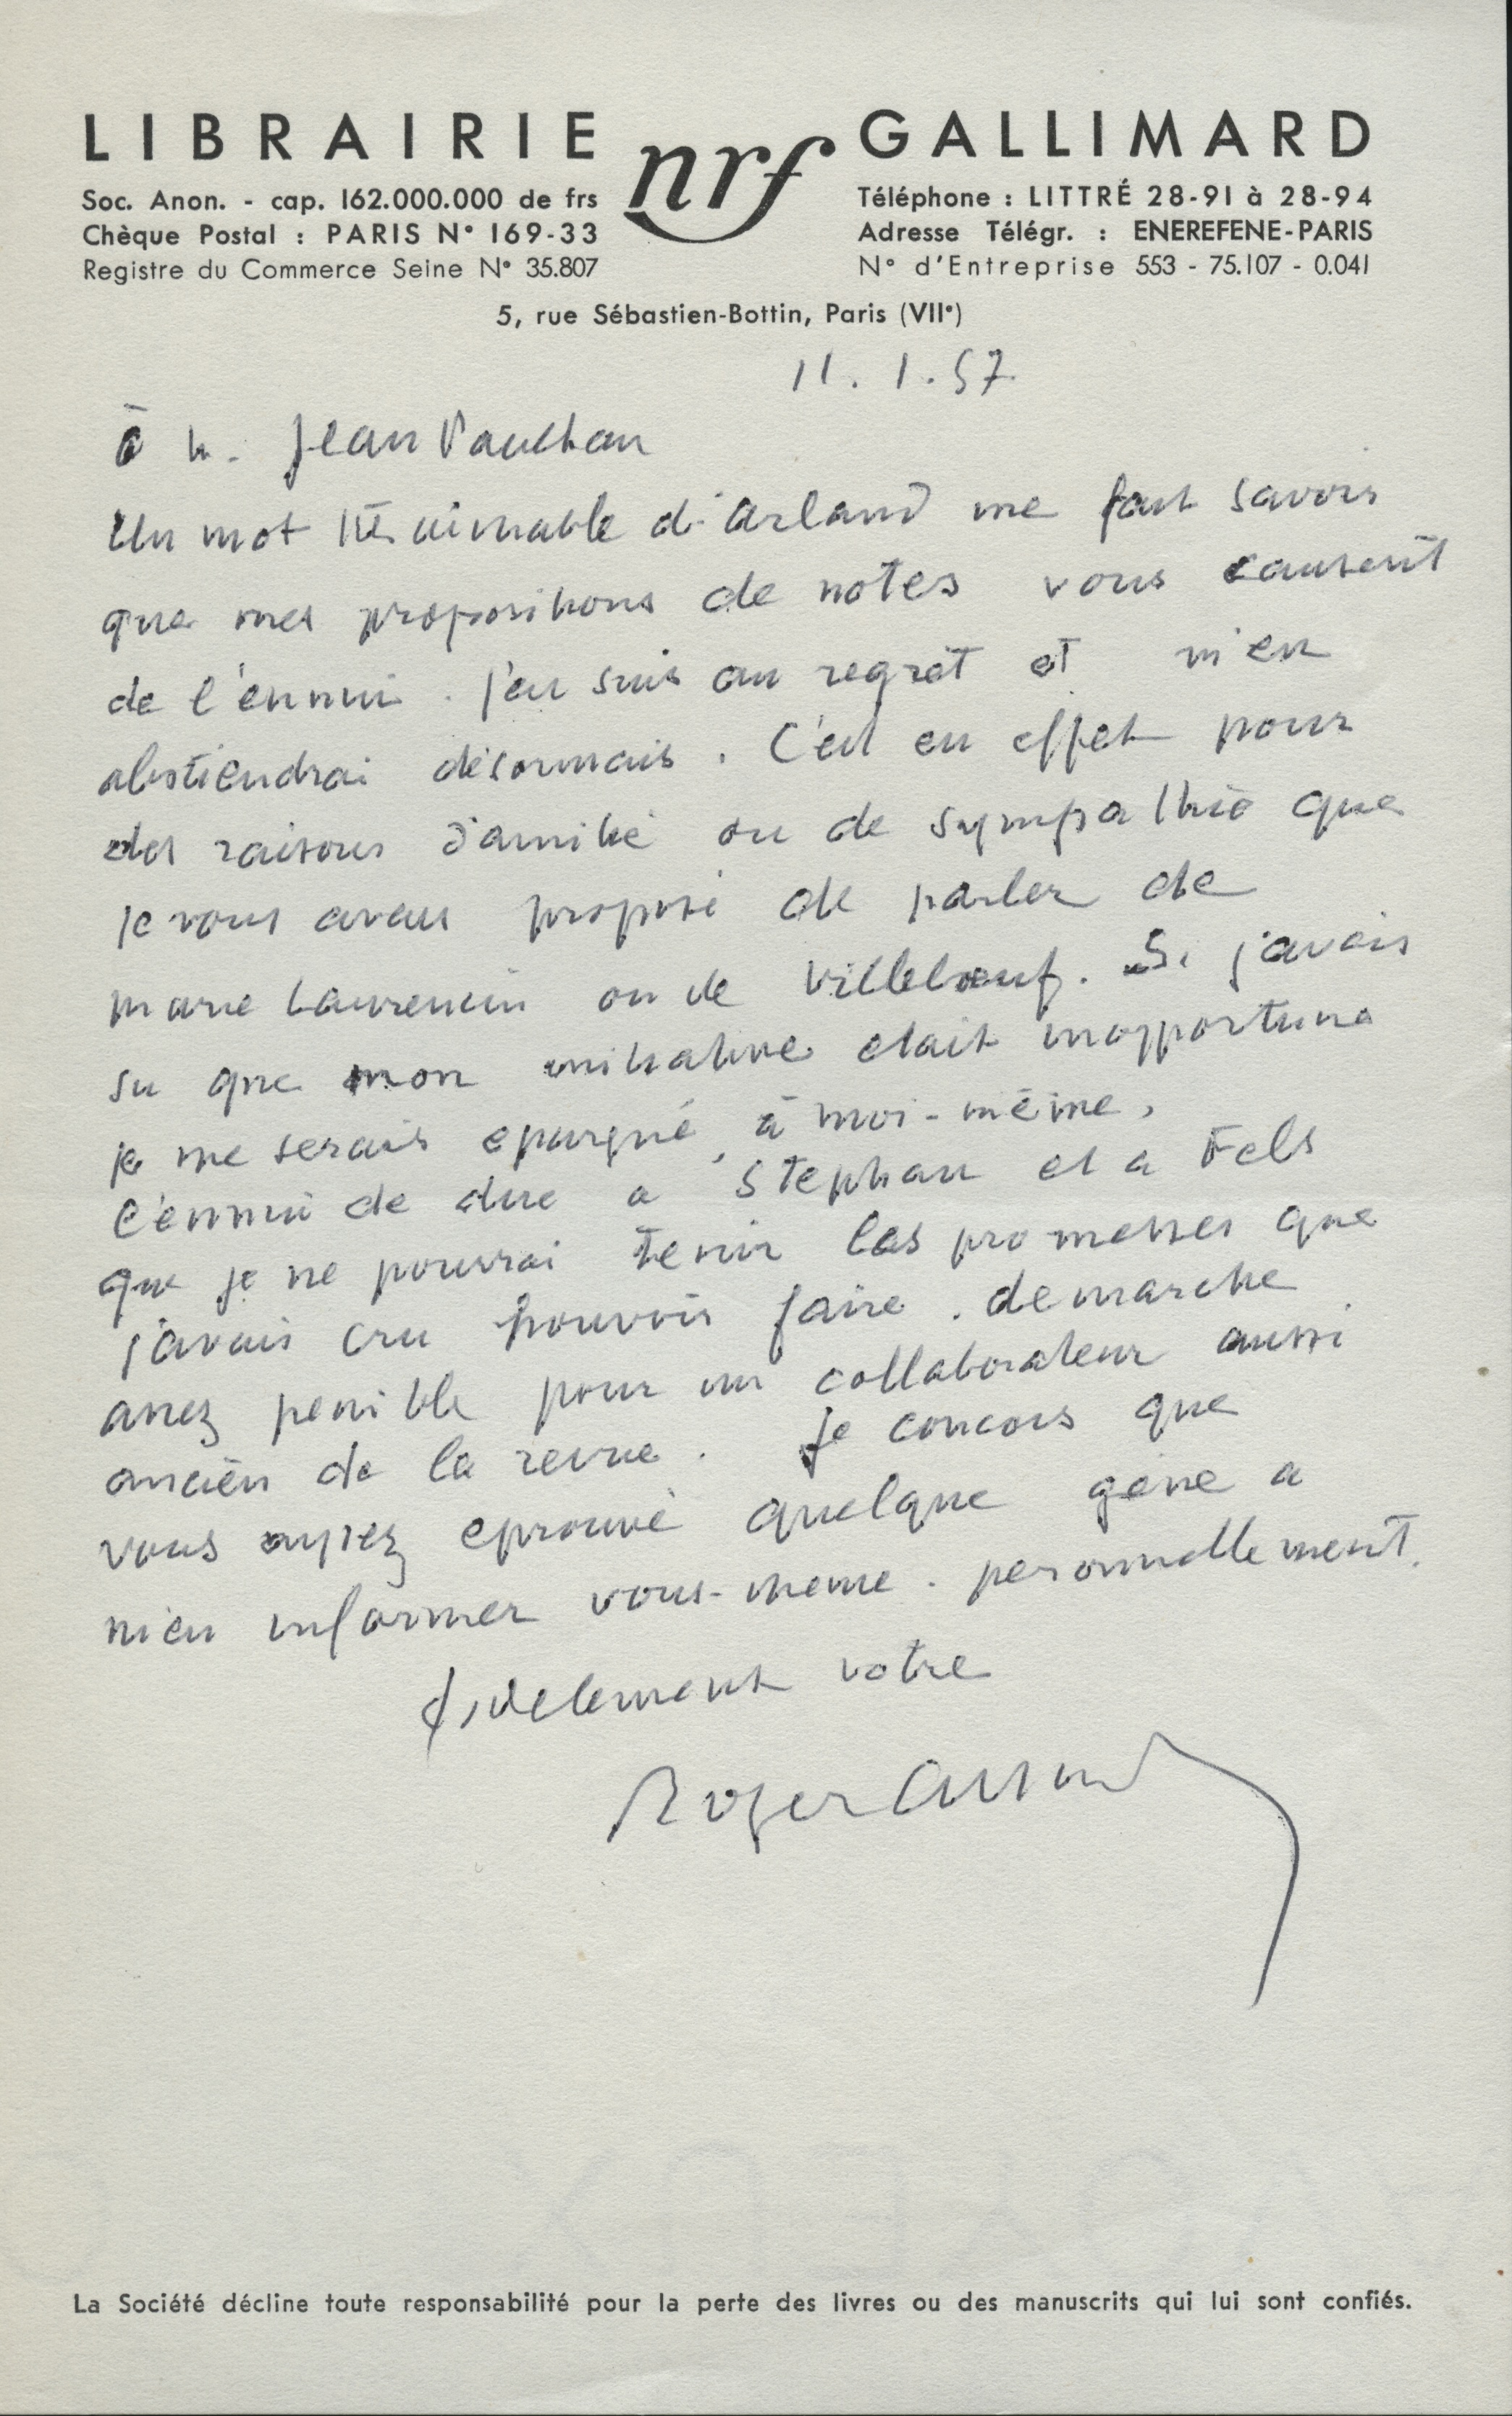 LIBRAIRIE nrf GALLIMARD
Soc. Anon. - cap. 162.000.000 de frs
Chèque Postal : PARIS N° 169-33
Registre du Commerce Seine N° 35.807
Téléphone : LITTRÉ 28-91 à 28-94
Adresse Télégr. : ENEREFENE-PARIS
N° d'Entreprise 553 - 75.107 - 0.041
5, rue Sébastien-Bottin, Paris (VIIe)
11. 1. 57.
à M. Jean Paulhan
Un mot très aimable d'Arland me fait savoir
que mes propositions de notes vous causent
de l'ennui. J'en suis au regret et m'en
abstiendrai désormais. C'est en effet pour
des raisons d'amitié ou de sympathie que
je vous avais proposé de parler de
Marie Laurencin ou de Villeboeuf. Si j'avais
su que mon initiative etait inopportune
je me serais epargné, à moi-même,
l'ennui de dire a Stephan et a Fels
que je ne pourrai tenir les promesses que
j'avais cru pouvoir faire. demarche
assez penible pour un collaborateur aussi
ancien de la revue. Je concois que
vous ayiez eprouvé quelque gêne a
m'en informer vous-meme. personnellement.
fidelement votre
Roger
La Société décline toute responsabilité pour la perte des livres ou des manuscrits qui lui sont confiés.